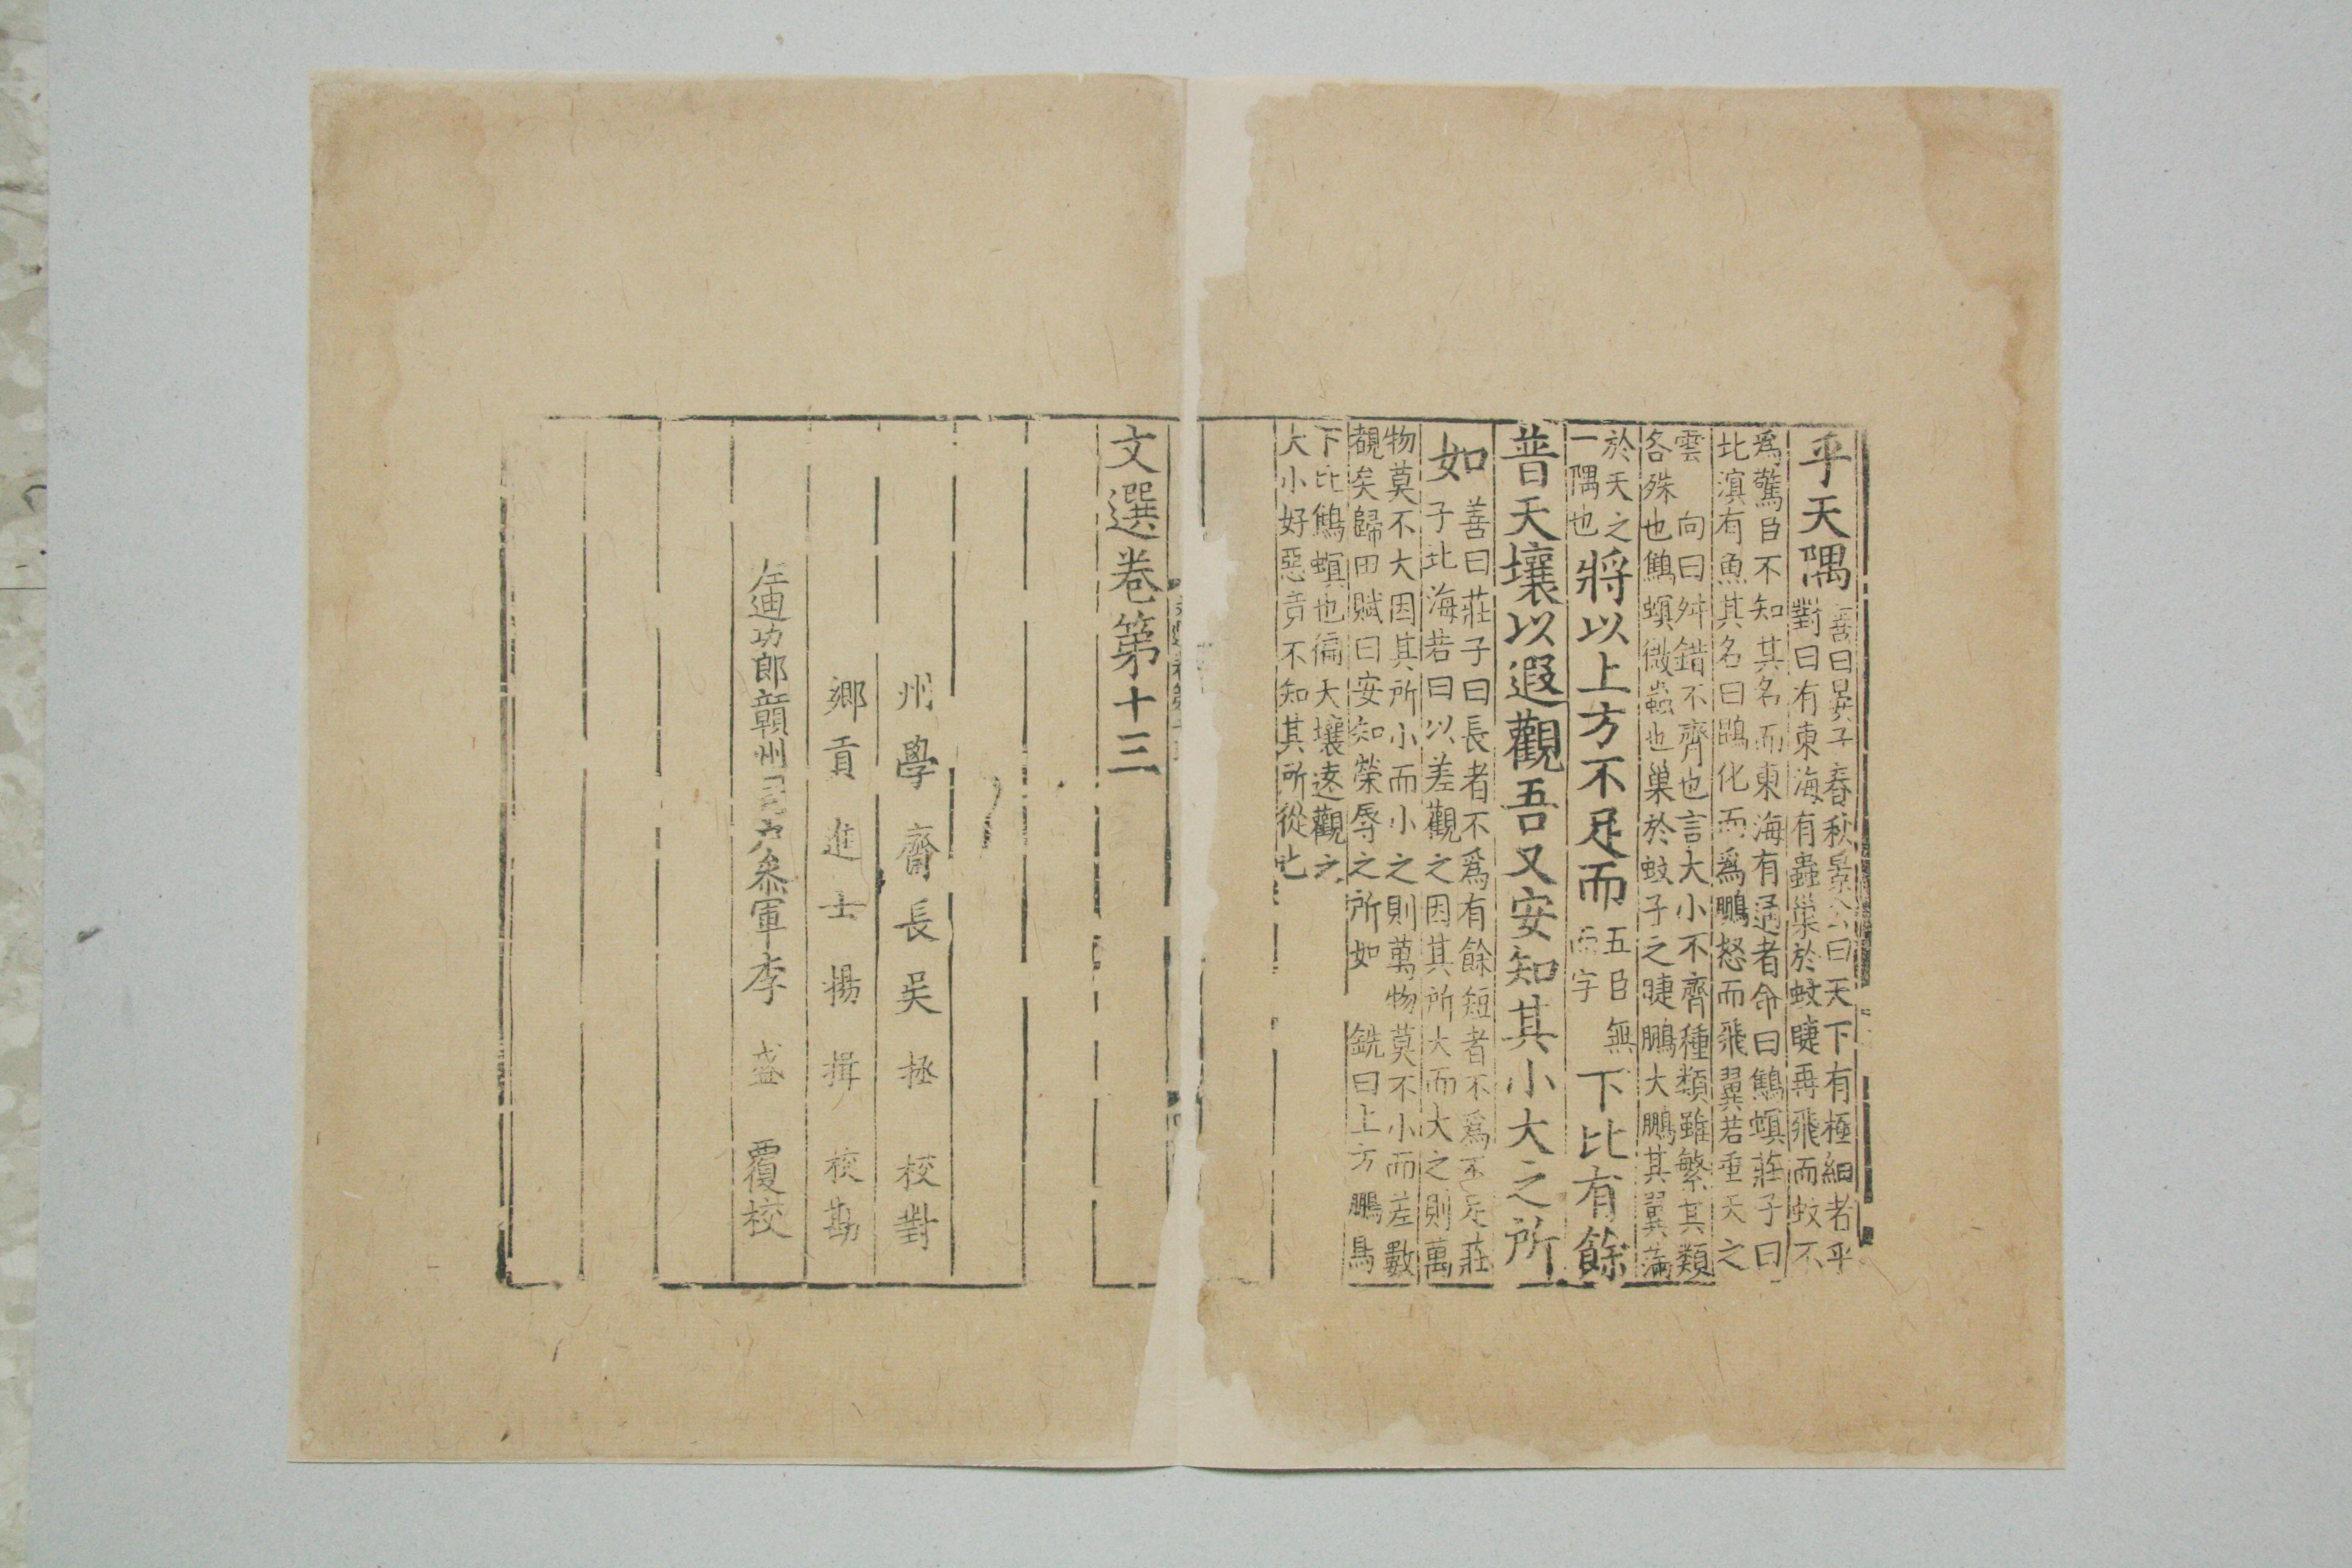 乎天隅善曰晏子春秋景公曰天下有極細者乎
對曰有東海有蟲巢於蚊睫再飛而蚊不
為驚臣不知其名而東海有通者命曰鷦螟莊子曰
北溟有魚其名曰鵾化而為鵬怒而飛翼若垂天之
雲 向曰舛錯不齊也言大小不齊種類雖繁其類
各殊也鷦螟微蟲也巢於蚊子之睫鵬大鵬其翼滿
於天之
一隅也將以上方不足而五臣無
而字下比有餘
普天壤以遐觀吾又安知其小大之所
如善曰莊子曰長者不為有餘短者不為不足莊
子北海若曰以差觀之因其所大而大之則萬
物莫不大因其所小而小之則萬物莫不小而差數
覩矣歸田賦曰安知榮辱之所如 銑曰上方鵬鳥
下比鷦螟也徧大壤遠觀之
大小好惡竟不知其所從也
文選卷第十三
州學齋長吳拯校對
鄉貢進士楊揖校勘
左迪功郎贛州司戶參軍李盛覆校